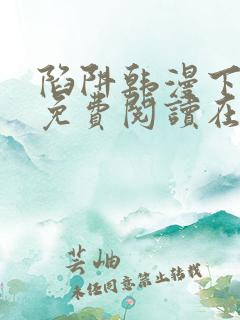 陷阱韩漫下
免費閱讀在
芸岫
未经同意禁止转载